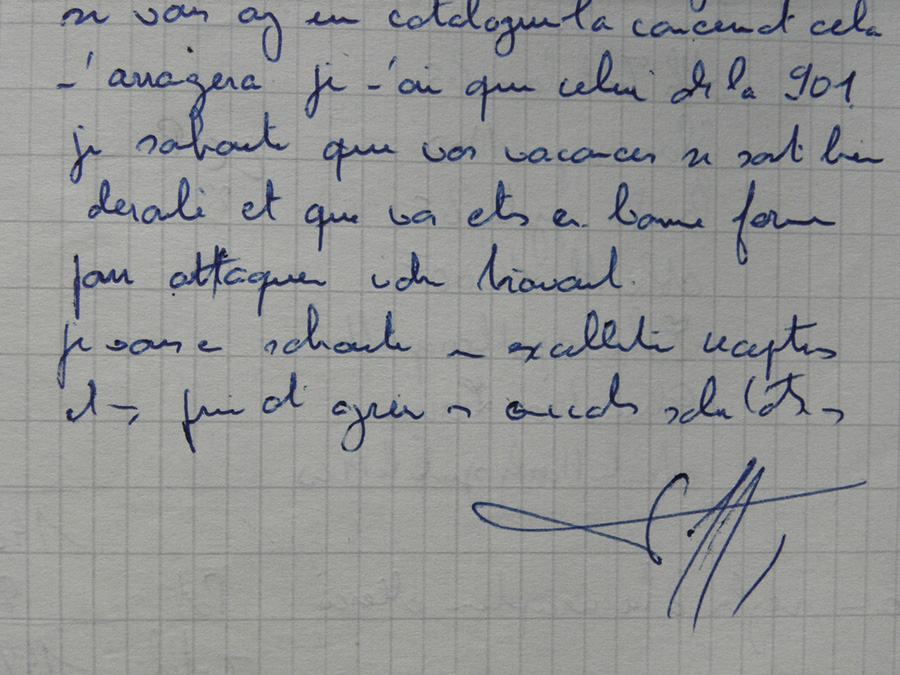 si vous avez un catalogue la concernant cela
m'arrangera je n'ai que celui de la 901
je souhaite que vos vacances se sont bien
déroulé et que vous etes en bonne forme
pour attaquer votre travail.
je vous en souhaite une excellente reception
et vous prie d'agréer mes amicales salutations